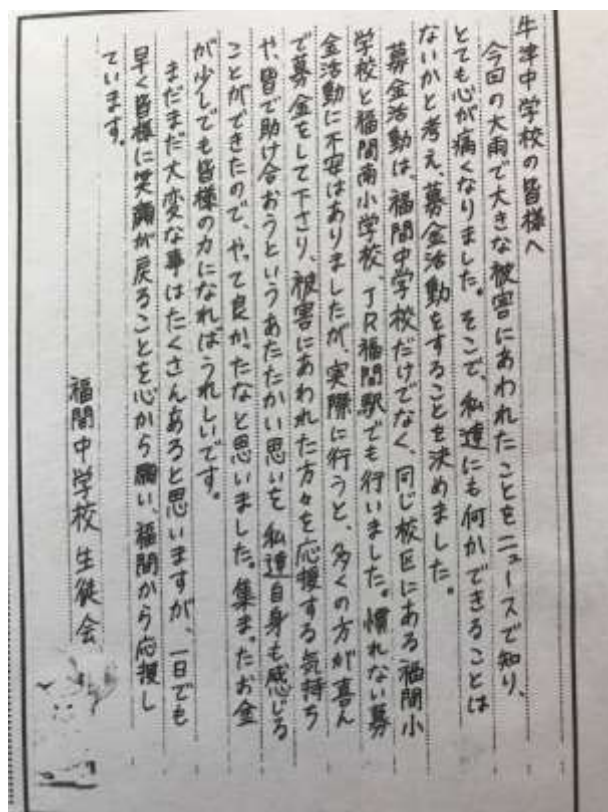 牛津中学校の皆様へ
今回の大雨で大きな被害にあわれたことをニュースで知り、
とても心が痛くなりました。そこで、私達にも何かできることは
ないかと考え、募金活動をすることを決めました。
募金活動は、福間中学校だけでなく、同じ校区にある福間小
学校と福間南小学校、JR福間駅でも行いました。慣れない募
金活動に不安はありましたが、実際に行うと、多くの方が喜ん
で募金をして下さり、被害にあわれた方々を応援する気持ち
や、皆で助け合おうというあたたかい思いを私達自身も感じる
ことができたので、やって良かったなと思いました。集まったお金
が少しでも皆様の力になればうれしいです。
まだまだ大変な事はたくさんあると思いますが、一日でも
早く皆様に笑顔が戻ることを心から願い、福間から応援し
ています。
福間中学校生徒会